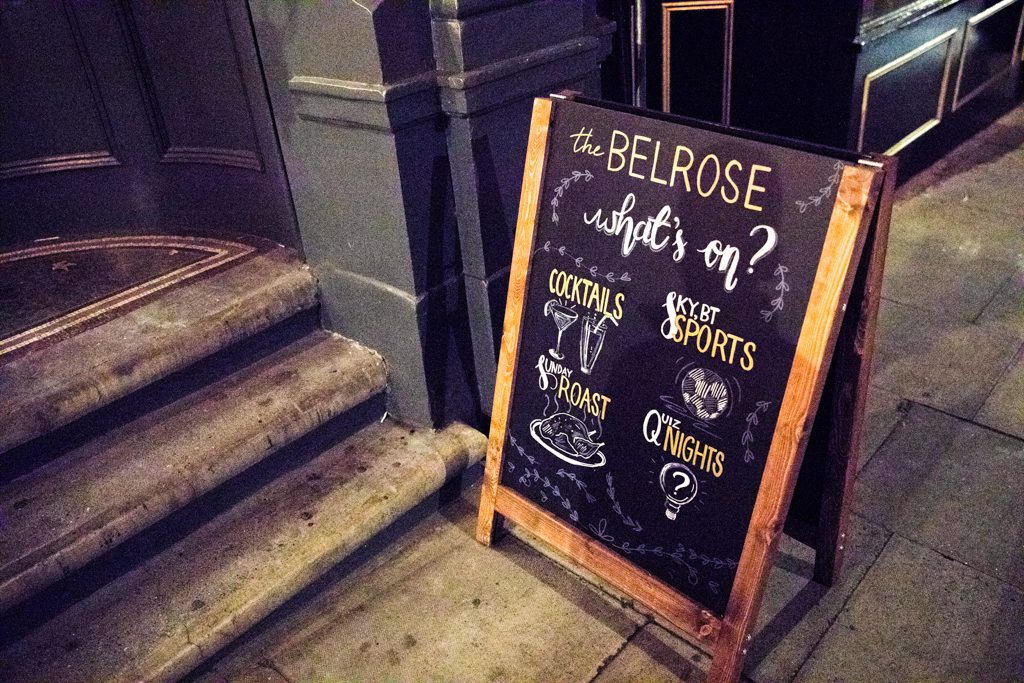 the BELROSE
what's on?
COCKTAILS
SUNDAY
ROAST
SKY, BT
SPORTS
QUIZ
NIGHTS
?